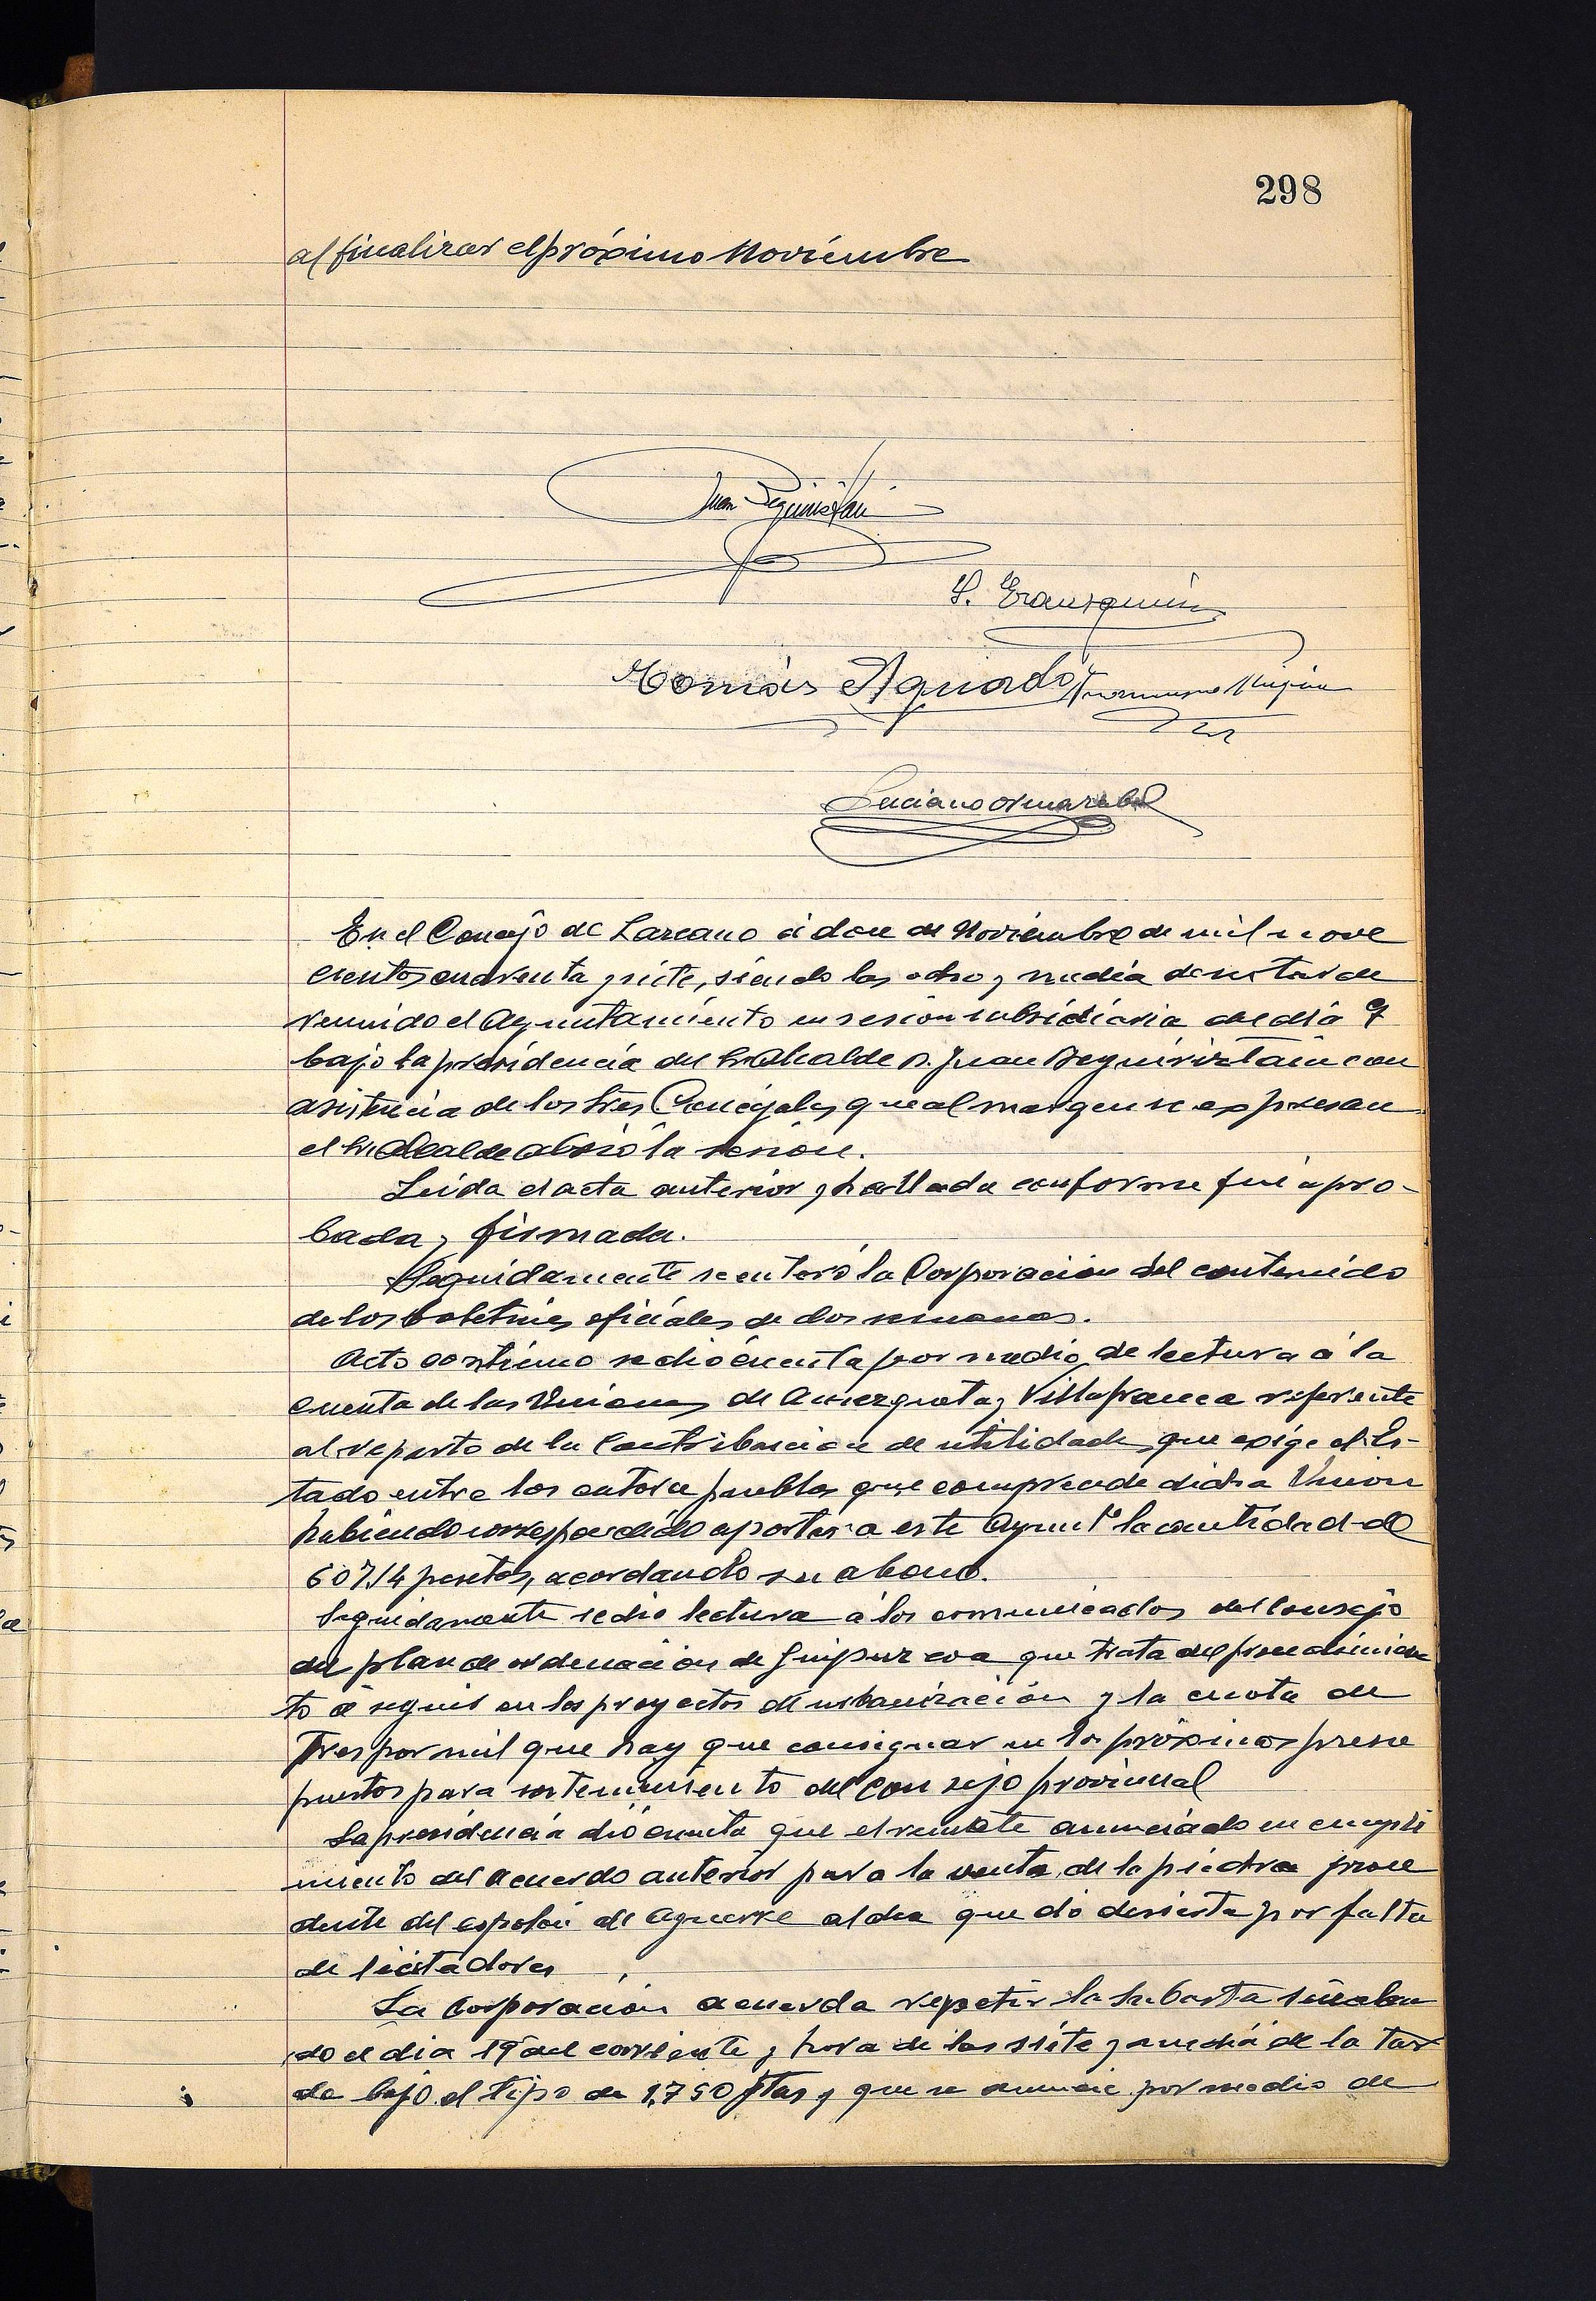 298
al finalizar el próximo Noviembre
Juan
Tomás Aguado
Luciano
En el Concejo de Lazcano á doce de Noviembre de mil nove
cientos cuarenta y siete, siendo las ocho y media de su tarde
reunido el Ayuntamiento en sesión subsidiaria del dia 9
bajo la presidencia del Sr. Alcalde D. Juan Beguiristain con
asistencia de los Sres Concejales que al margen se expresan
el Sr. Alcalde abrió la sesión.
Leida el acta anterior y hallada conforme fué apro-
bada y firmada.
Seguidamente se enteró la Corporación del contenido
de los boletines oficiales de dos semanas.
Acto contínuo se dió cuenta por medio de lectura á la
cuenta de las Uniones de Amezqueta y Villafranca referente
al reparto de la Contribución de utilidades que exige el Es-
tado entre los catorce pueblos que comprende dicha Union
habiendo correspondido aportar a este Ayunt° la cantidad de
607.14 pesetas, acordando su abono.
Seguidamente se dio lectura á los comunicados del Consejo
del plan de ordenación de Guipuzcoa que trata del procedimien
to á seguir en los proyectos de urbanización y la cuota de
Tres por mil que hay que consignar en los próximos presu
puestos para sostenimiento del Consejo provincial
La presidencia dió cuenta que el remate anunciado en cumpli
miento del acuerdo anterior para la venta de la piedra proce
dente del espolón de Aguerre aldea quedó desierta por falta
de licitadores
La Corporación acuerda repetir la subasta señalan
do el dia 19 del corriente y hora de las siete y media de la tar
de bajo el tipo de 1,750 ptas y que se anuncie por medio de